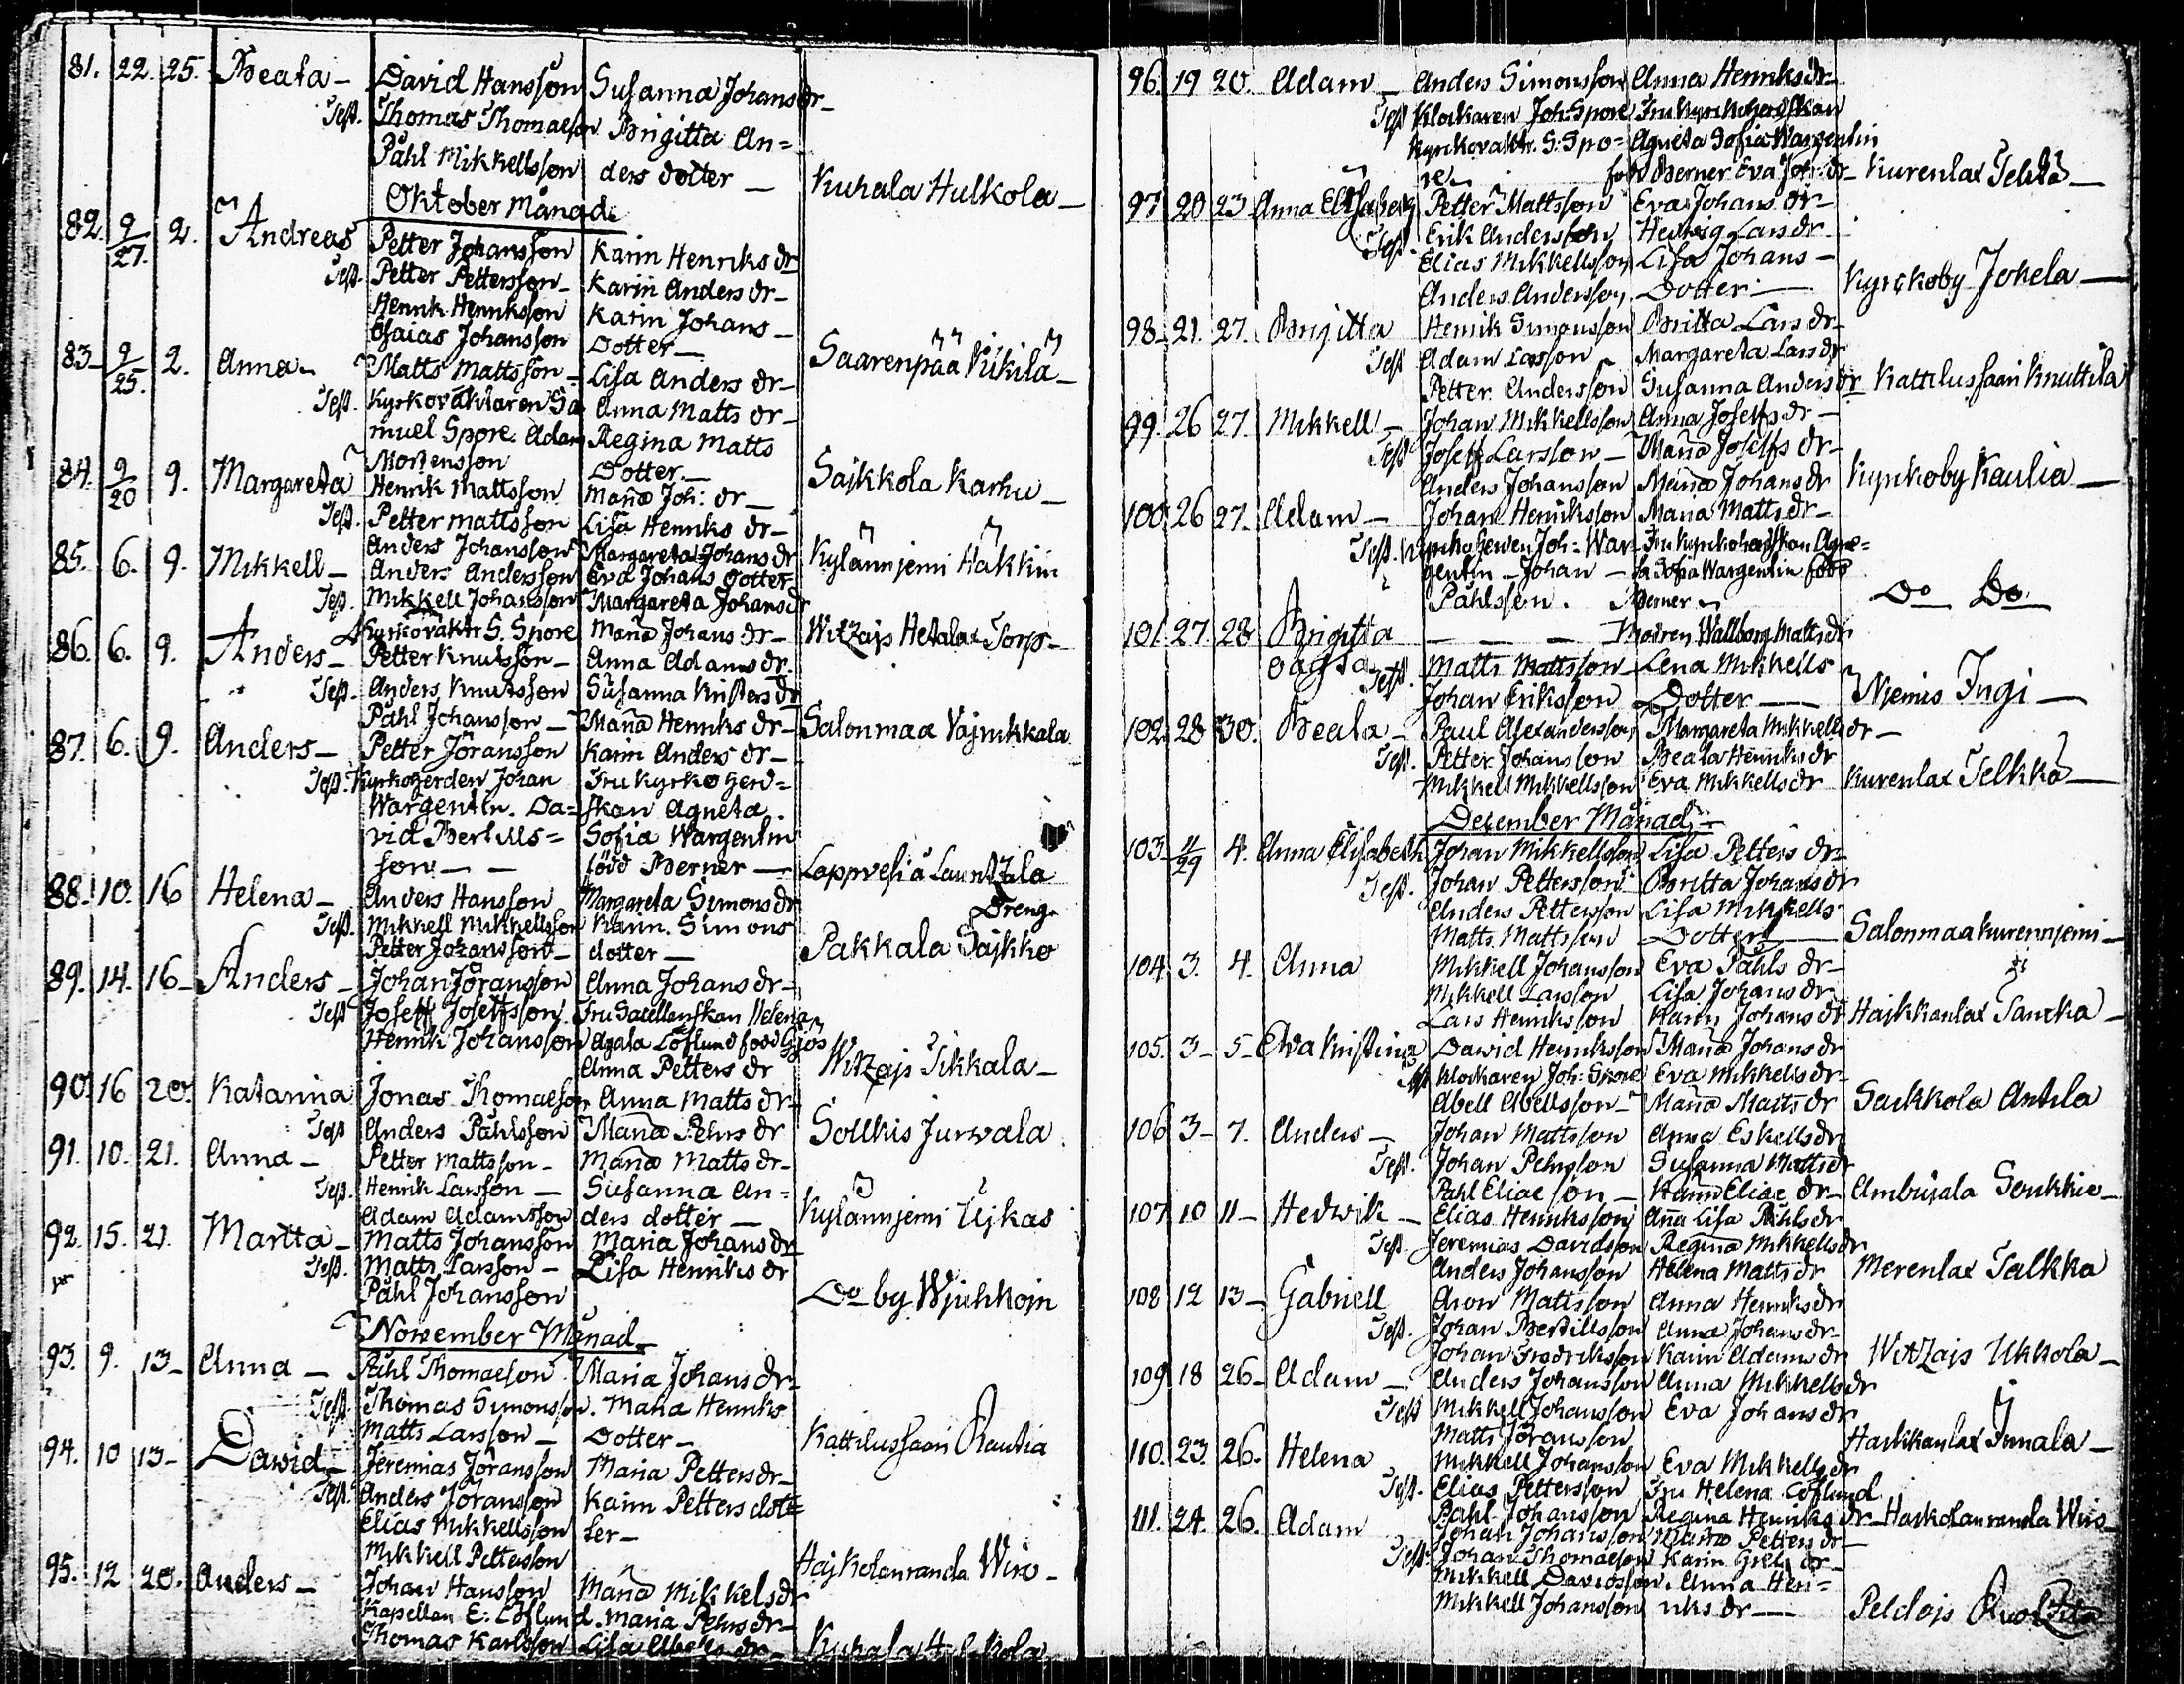 81. 22. 25. Beata - David Hansson Susanna Johans dr -
Test. Thomas Thomaeson Brigitta An=
Påhl Mikkellsson ders dotter - Kuhala Hulkola -
Oktober Månad.
82. 9/27. 2. Andreas Petter Johansson Karin Henriks dr
Test. Petter Pettersson - Karin Anders dr -
Henrik Henriksson Karin Johans -
Esaias Johansson Dotter - Saarenpää Kikilä -
83 - 9/25. 2. Anna - Matts Mattsson - Lisa Anders dr -
Test. Kyrkovaktaren Sa Anna Matts dr -
muel Spore. Adam Regina Matts
Mortensson Dotter. - Sajkkola Karhu -
84. 9/20 9. Margareta Henrik Mattsson Maria Joh: dr -
Test. Petter mattsson Lisa Henriks dr -
Anders Johansson Margareta Johans dr Kylännjemi Häkkin
85. 6. 9. Mikkell - Anders Andersson Eva Johans dotter
Test. Mikkell Johansson Margareta Johans dr
Kyrkovaktr S. Spore Maria Johans dr - Witzajs Hetala Torp -
86. 6. 9. Anders - Petter Knutsson - Anna Adams dr
Test. Anders Knutsson Susanna Kristers dr
Påhl Johansson - Maria Henriks dr - Salonmaa Vajnikkala
87. 6. 9. Anders - Petter Jöransson Karin Anders dr -
Test. Kyrkoherden Johan Fru Kyrko herd=
Wargentin. Da= skan Agneta.
vid Bertills= Sofia Wargentin
son - - född Berner - Lappvesi Launtzila
Dreng.
88. 10. 16 Helena - Anders Hansson Margareta Simons dr
Test. Mikkell Mikkellsson Karin. Simons
Petter Johansson - dotter - Pakkala Sajkko
89. 14. 16 - Anders - Johan Jöransson Anna Johans dr -
Test Joseff Joseffsson. Fru Sacellanskan Helena
Henrik Johansson Agata Löflund född Gjös
Anna Petters dr Witzajs Tikkala -
90. 16 20. Katarina Jonas Thomaeson Anna Matts dr -
Test Anders Påhlsson Maria Pehrs dr Sollkis Jurvala.
91. 10. 21. Anna - Petter mattsson - Maria Matts dr -
Test. Henrik Larsson - Susanna An=
Adam Adamsson ders dotter - Kylännjemi Ujkas
92. 15. 21. Martta - Matts Johansson Maria Johans dr
Test. Matts Larsson - Lisa Henriks dr
Påhl Johansson Do by Wjuhkoin
November Månad -
93. 9. 13 - Anna - Påhl Thomaeson Maria Johans dr -
Test. Thomas Simonsson. Maria Henriks
Matts Larsson - Dotter - Kattilussaari Rautia
94. 10 13 - Dawid - Jeremias Jöransson Maria Petters dr -
Test. Anders Jöransson Karin Petters dot=
Elias Mikkellsson ter -
Mikkell Pettersson Hajkolanranda Wiro -
95. 12 20. Anders - Johan Hansson Maria Mikkels dr
Kapellan E: Löflund. Maria Pehrs dr -
Thomas Karlsson Lisa Abells dr - Kuhala Hulkkola
96. 19 20. Adam - Anders Simonsson Anna Henriks dr -
Test Klockaren Joh: Spore Fru Kyrkoherdskan
Kyrkovaktr. S: Spo= Agneta Sofia Wargentin
re - född Berner Eva Joh: dr - Kurenlax Telkkä -
97. 20 23 Anna Elisabeth Petter Mattsson Eva Johans dr -
Test. Erik Andersson Hedwig Lars dr -
Elias Mikkellsson Lisa Johans -
Anders Andersson Dotter - Kyrckoby Jokela -
98. 21. 27. Brigitta Henrik Simonsson Britta Lars dr -
Test Adam Larsson - Margareta Lars dr
Petter Andersson Susanna Anders dr Kattilussaari Knuttila
99. 26 27. Mikkell - Johan Mikkellsson Anna Joseffs dr -
Test Joseff Larsson - Maria Joseffs dr -
Anders Johansson Maria Johans dr Kyrkoby Kaulia -
100. 26 27. Adam - Johan Henriksson Maria Matts dr -
Test. Kyrkoherden Joh: War- Fru Kyrkoherdskan Agne=
gentin - Johan - ta Sofia Wargentin född
Påhlsson. Berner - Do Do
101. 27. 28 Brigitta - - - Modren Wallborg Matts dr
oägta. Test. Matts Mattsson Lena Mikkells
Johan Eriksson Dotter - Njemis Ingi -
102. 28 30. Beata - Paul Alexandersson Margareta Mikkells dr -
Test. Petter Johansson Beata Henriks dr
Mikkell Mikkellsson Eva Mikkells dr Kurenlax Telkkä -
December Månad -
103. 11/29 4. Anna Elisabeth Johan Mikkellsson Lisa Petters dr -
Test. Johan Pettersson Britta Johans dr
Anders Pettersson Lisa Mikkells
Matts. Mattsson Dotter - Salonmaa Kurennjemi -
104. 3. 4. Anna Mikkell Johansson Eva Påhls dr -
Mikkell Larsson Lisa Johans dr
Lars Henriksson Karin Johans dr Hajkkanlax Tancka -
105. 3 - 5 - Eva Kristina Dawid Henriksson Maria Johans dr
Test Klockaren Joh: Spore Eva Mikkells dr -
Abell Abellsson - Maria Matts dr Saikkola Anttila
106 3 - 7. Anders - Johan Mattsson Anna Eskells dr
Test. Johan Pehrsson Susanna Matts dr
Pahl Eliaeson - Karin Eliae dr - Ambusala Soukkio -
107 10 11 - Hedwik - Elias Henriksson Anna Lisa Påhls dr
Test. Jeremias Davidsson Regina Mikkells dr
Anders Johansson Helena Matts dr Merenlax Talkka
108 12 13 - Gabriell Aron Mattsson Anna Henriks dr
Test. Johan Bertillsson Anna Johans dr -
Johan Fredriksson Karin Adams dr Witzajs Ukkola -
109 18 26 - Adam - Anders Johansson Anna Mikkells dr
Test Mikkell Johansson Eva Johans dr
Matts Jöransson Haikkanlax Innala -
110. 23. 26. Helena Mikkell Johansson Eva Mikkells dr
Test. Elias Pettersson Fru Helena Löflund
Pahl Johansson Regina Henriks dr - Haikolanranda Wiro -
111. 24. 26. Adam Johan Johansson Maria Petters dr -
Test. Johan Thomaeson Karin Grels dr -
Mikkell Davidsson. Anna Hen=
Mikkell Johansson riks dr - Peldojs